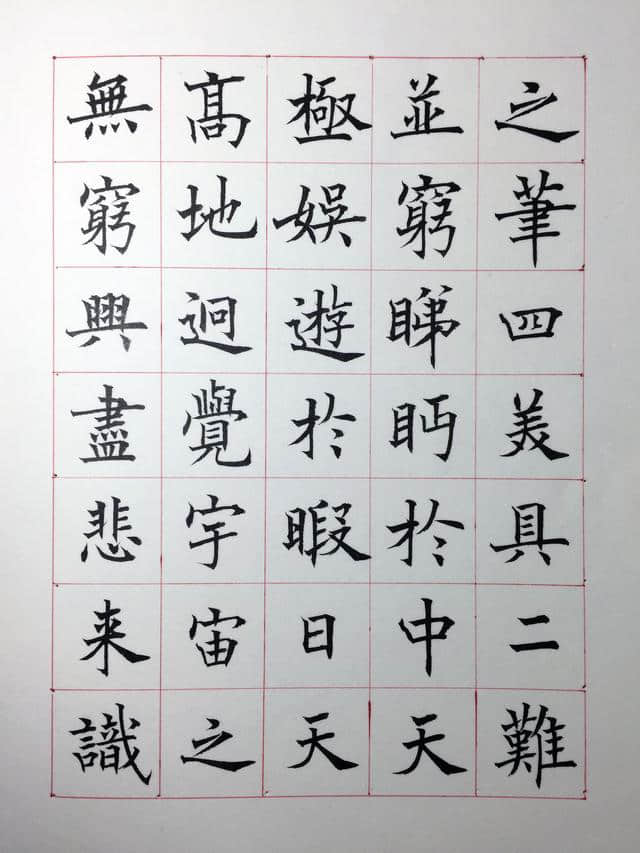 之筆四美具二難
並窮睇眄於中天
極娛遊於暇日天
髙地迥覺宇宙之
無窮興盡悲来識